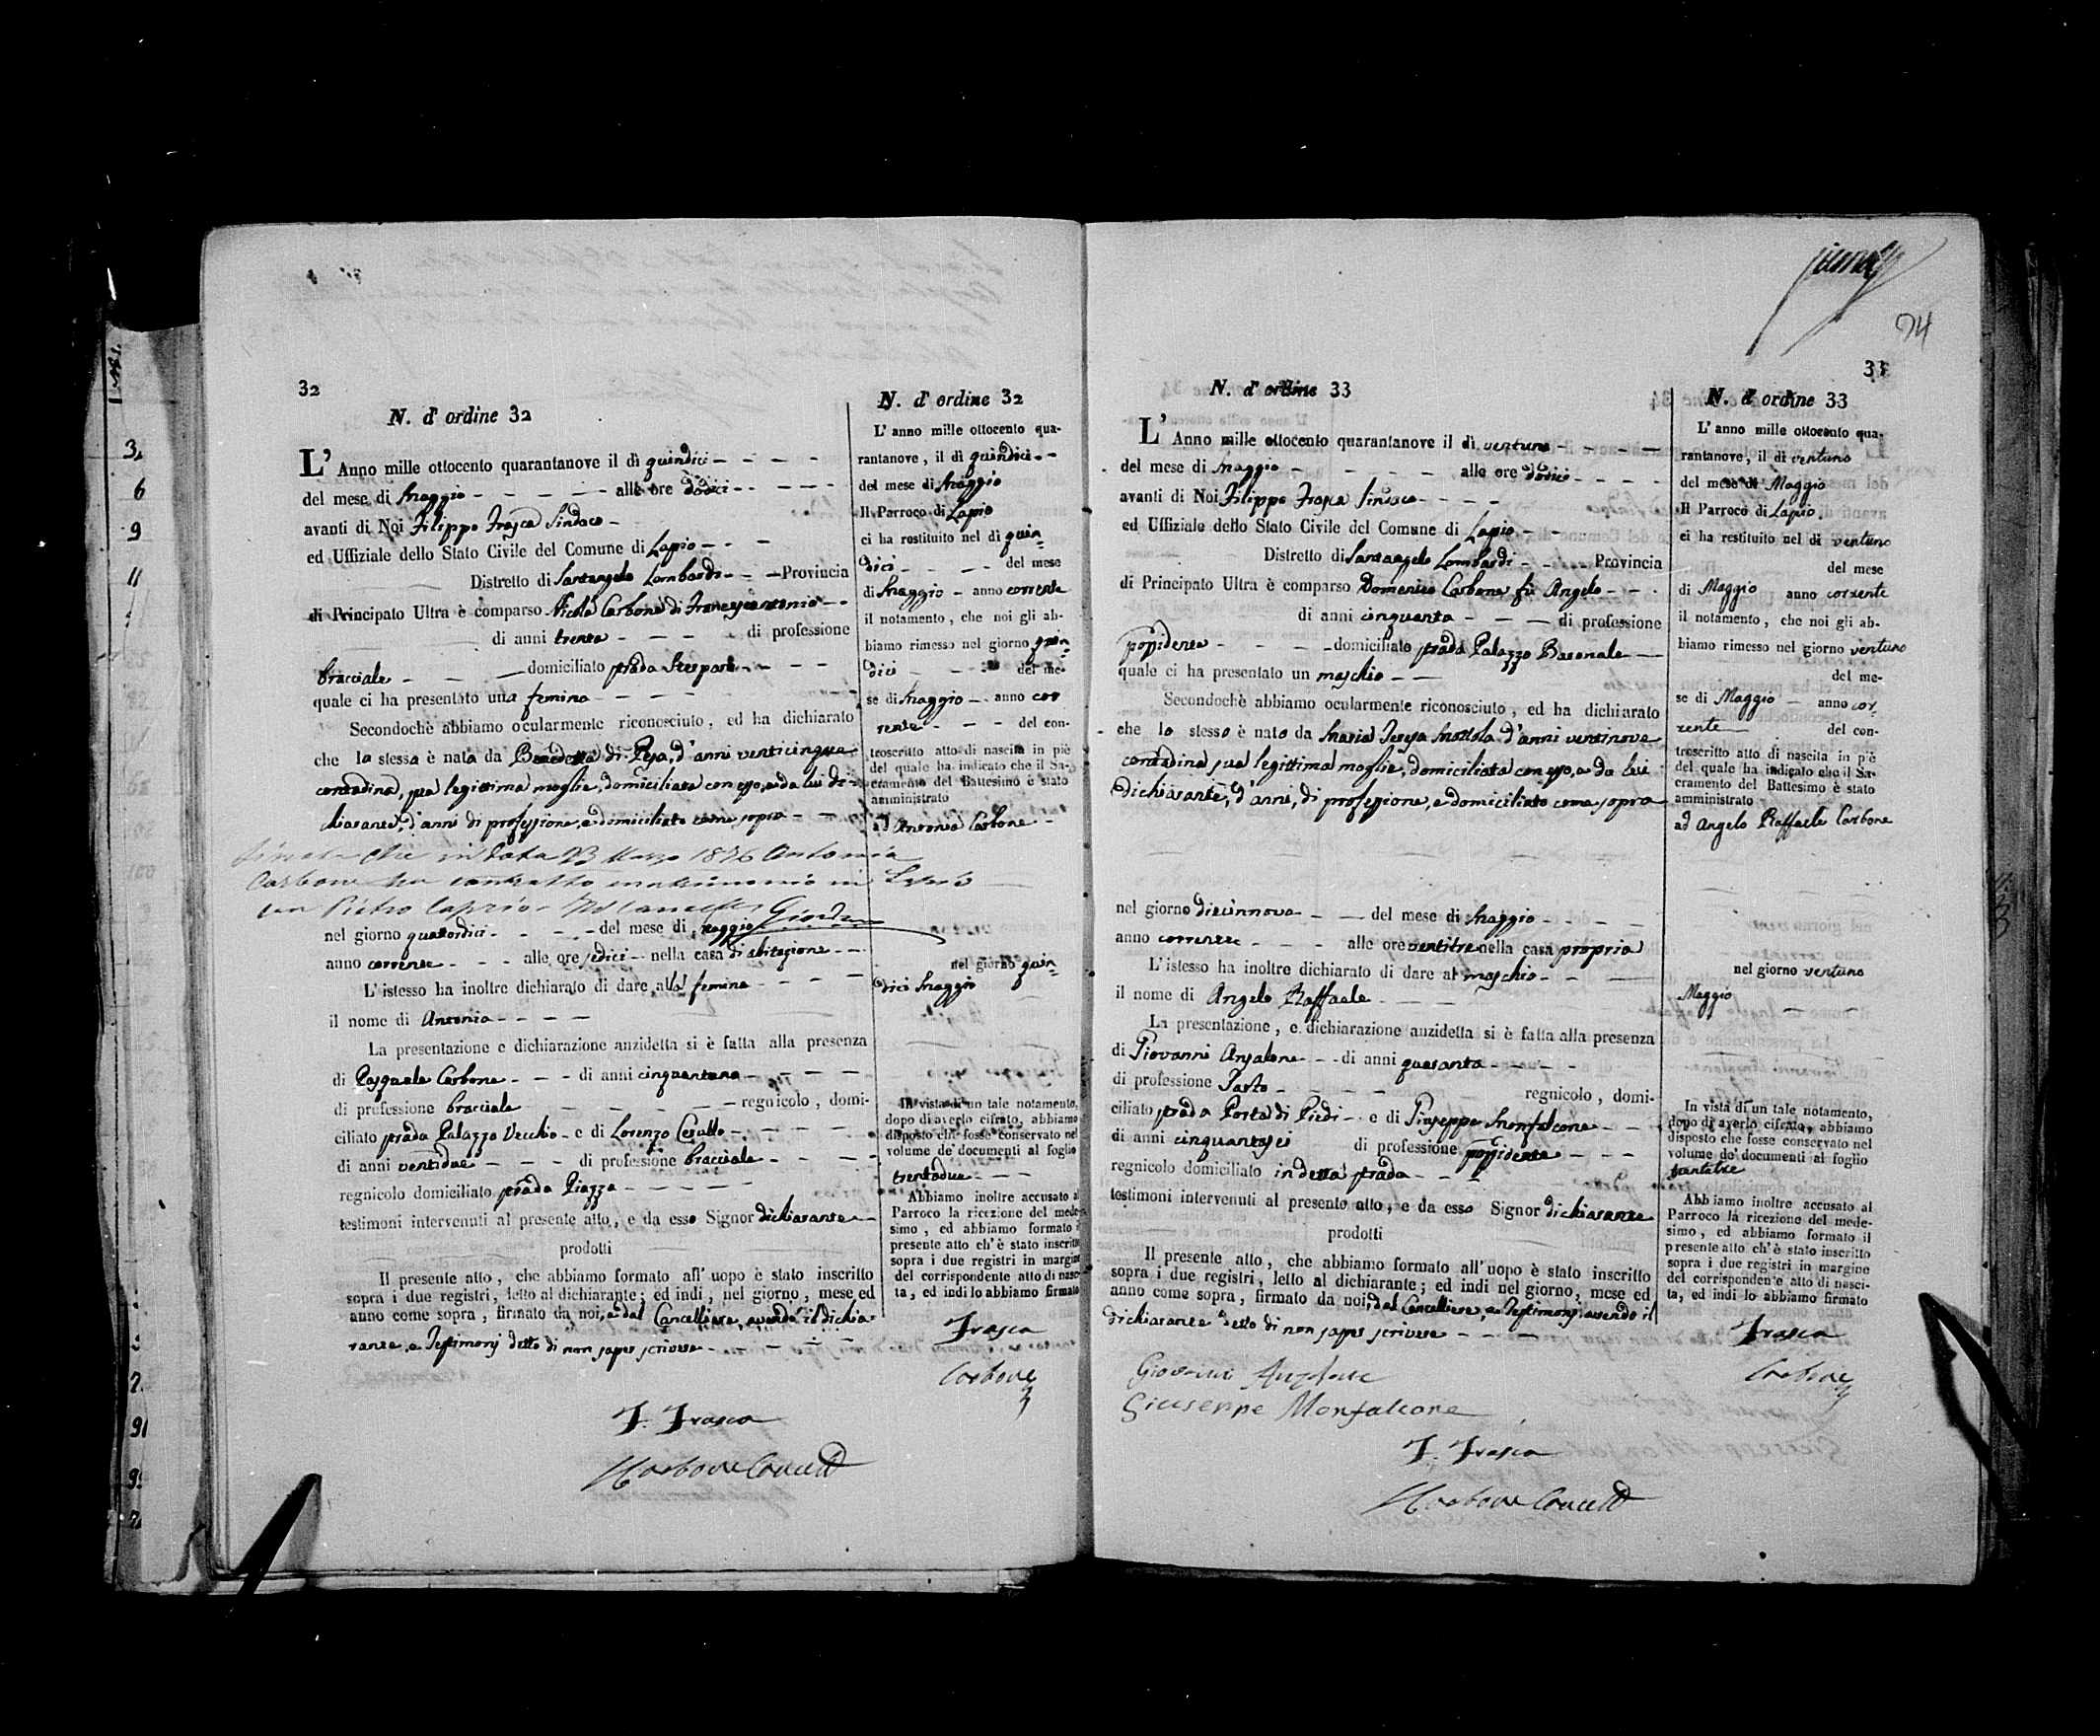 32
N. d' ordine 32
L' Anno mille ottocento quarantanove il dì quindici
del mese di Maggio alle ore dodici
avanti di Noi Filippo Frasca Sindaco
ed Uffiziale dello Stato Civile del Comune di Lapio
Distretto di Santangelo Lombardi Provincia
di Principato Ultra è comparso Nicola Carbone di Francescantonio
di anni trenta di professione
bracciale domiciliato strada
quale ci ha presentato una femina
Secondochè abbiamo ocularmente riconosciuto, ed ha dichiarato
che la stessa è nata da Benedetta di d'anni venticinque
contadina, sua legittima moglie, domiciliata con esso, e da lui di-
chiarante, d'anni di professione, e domiciliato come sopra
che in data 23 Marzo 1876 Antonia
Carbone ha contratto matrimonio in Lapio
con Pietro Caprio
nel giorno quattordici del mese di Maggio
anno corrente alle ore sedici nella casa di abitazione
L'istesso ha inoltre dichiarato di dare alla femina
il nome di Antonia
La presentazione e dichiarazione anzidetta si è fatta alla presenza
di Pasquale Carbone di anni
di professione bracciale regnicolo, domi-
ciliato strada Palazzo Vecchio e di Lorenzo
di anni ventidue di professione bracciale
regnicolo domiciliato strada Piazza
testimoni intervenuti al presente atto, e da esso Signor dichiarante
prodotti
Il presente atto, che abbiamo formato all' uopo è stato inscritto
sopra i due registri, letto al dichiarante; ed indi, nel giorno, mese ed
anno come sopra, firmato da noi, e dal Cancelliere, avendo il dichia-
rante, e Testimonj detto di non saper scrivere
F. Frasca
Carbone
N. d' ordine 32
L' anno mille ottocento qua-
rantanove, il dì quindici
del mese di Maggio
Il Parroco di Lapio
ci ha restituito nel dì quin-
dici del mese
di Maggio anno corrente
il notamento, che noi gli ab-
biamo rimesso nel giorno quin-
dici del me-
se di Maggio anno cor
rente del con-
troscritto atto di nascita in piè
del quale ha indicato che il Sa-
cramento del Battesimo è stato
amministrato
ad Antonia Carbone
nel giorno quin-
dici Maggio
In vista di un tale notamento,
dopo di averlo cifrato, abbiamo
disposto che fosse conservato nel
volume de' documenti al foglio
trentadue
Abbiamo inoltre accusato al
Parroco la ricezione del mede-
simo, ed abbiamo formato il
presente atto ch'è stato inscritto
sopra i due registri in margine
del corrispondente atto di nasci-
ta, ed indi lo abbiamo firmato
Frasca
Carbone
94
33
N. d' ordine 33
L' Anno mille ottocento quarantanove il dì ventuno
del mese di Maggio alle ore dodici
avanti di Noi Filippo Frasca Sindaco
ed Uffiziale dello Stato Civile del Comune di Lapio
Distretto di Santangelo Lombardi Provincia
di Principato Ultra è comparso Domenico Carbone fu Angelo
di anni cinquanta di professione
possidente domiciliato strada Palazzo Baronale
quale ci ha presentato un maschio
Secondochè abbiamo ocularmente riconosciuto, ed ha dichiarato
che lo stesso è nato da Maria Teresa Mottola d'anni ventinove
contadina, sua legittima moglie, domiciliata con esso, e da lui
dichiarante, d'anni, di professione, e domiciliato come sopra
nel giorno diecinnove del mese di Maggio
anno corrente alle ore ventitre nella casa propria
L'istesso ha inoltre dichiarato di dare al maschio
il nome di Angelo Raffaele
La presentazione, e dichiarazione anzidetta si è fatta alla presenza
di Giovanni Anzalone di anni quaranta
di professione Sarto regnicolo, domi-
ciliato strada Porta di Piedi e di Giuseppe Monfalcone
di anni cinquantasei di professione possidente
regnicolo domiciliato in detta strada
testimoni intervenuti al presente atto, e da esso Signor dichiarante
prodotti
Il presente atto, che abbiamo formato all' uopo è stato inscritto
sopra i due registri, letto al dichiarante; ed indi nel giorno, mese ed
anno come sopra, firmato da noi, dal Cancelliere, e Testimonj avendo il
dichiarante detto di non saper scrivere
Giovanni Anzalone
Giuseppe Monfalcone
F. Frasca
Carbone
N. d' ordine 33
L' anno mille ottocento qua-
rantanove, il dì ventuno
del mese di Maggio
Il Parroco di Lapio
ci ha restituito nel dì ventuno
del mese
di Maggio anno corrente
il notamento, che noi gli ab-
biamo rimesso nel giorno ventuno
del me-
se di Maggio anno cor-
rente del con-
troscritto atto di nascita in piè
del quale ha indicato che il Sa-
cramento del Battesimo è stato
amministrato
ad Angelo Raffaele Carbone
nel giorno ventuno
Maggio
In vista di un tale notamento,
dopo di averlo cifrato, abbiamo
disposto che fosse conservato nel
volume de' documenti al foglio
trentatre
Abbiamo inoltre accusato al
Parroco la ricezione del mede-
simo, ed abbiamo formato il
presente atto ch'è stato inscritto
sopra i due registri in margine
del corrispondente atto di nasci-
ta, ed indi lo abbiamo firmato
Frasca
Carbone